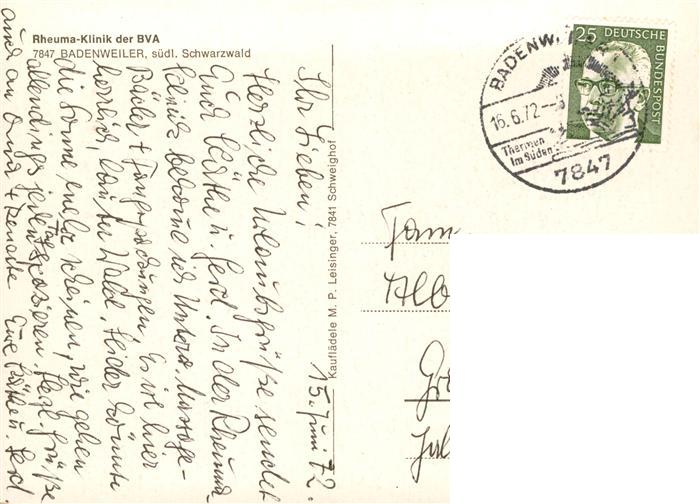 Rheuma-Klinik der BVA
7847 BADENWEILER, südl. Schwarzwald
15. Juni 72.
Ihr Lieben!
Herzliche Urlaubsgrüße sendet
Euch Käthe u. Gerd. In der Rheuma-
klinik bekomme ich Unterw. Massage-
Bäder + Fangopackungen. Es ist hier
herrlich, der Wald. Leider könnte
die Sonne mehr scheinen, wir gehen
allendings jeden Tag spazieren. Herzl. Grüße
auch an Oma + Renate Eure Käthe u. Gerd.
Kauflädele M. P. Leisinger, 7841 Schweighof
BADENW
16.6.72
Thermen
im Süden
7847
25 DEUTSCHE
BUNDESPOST
Fam
Alb